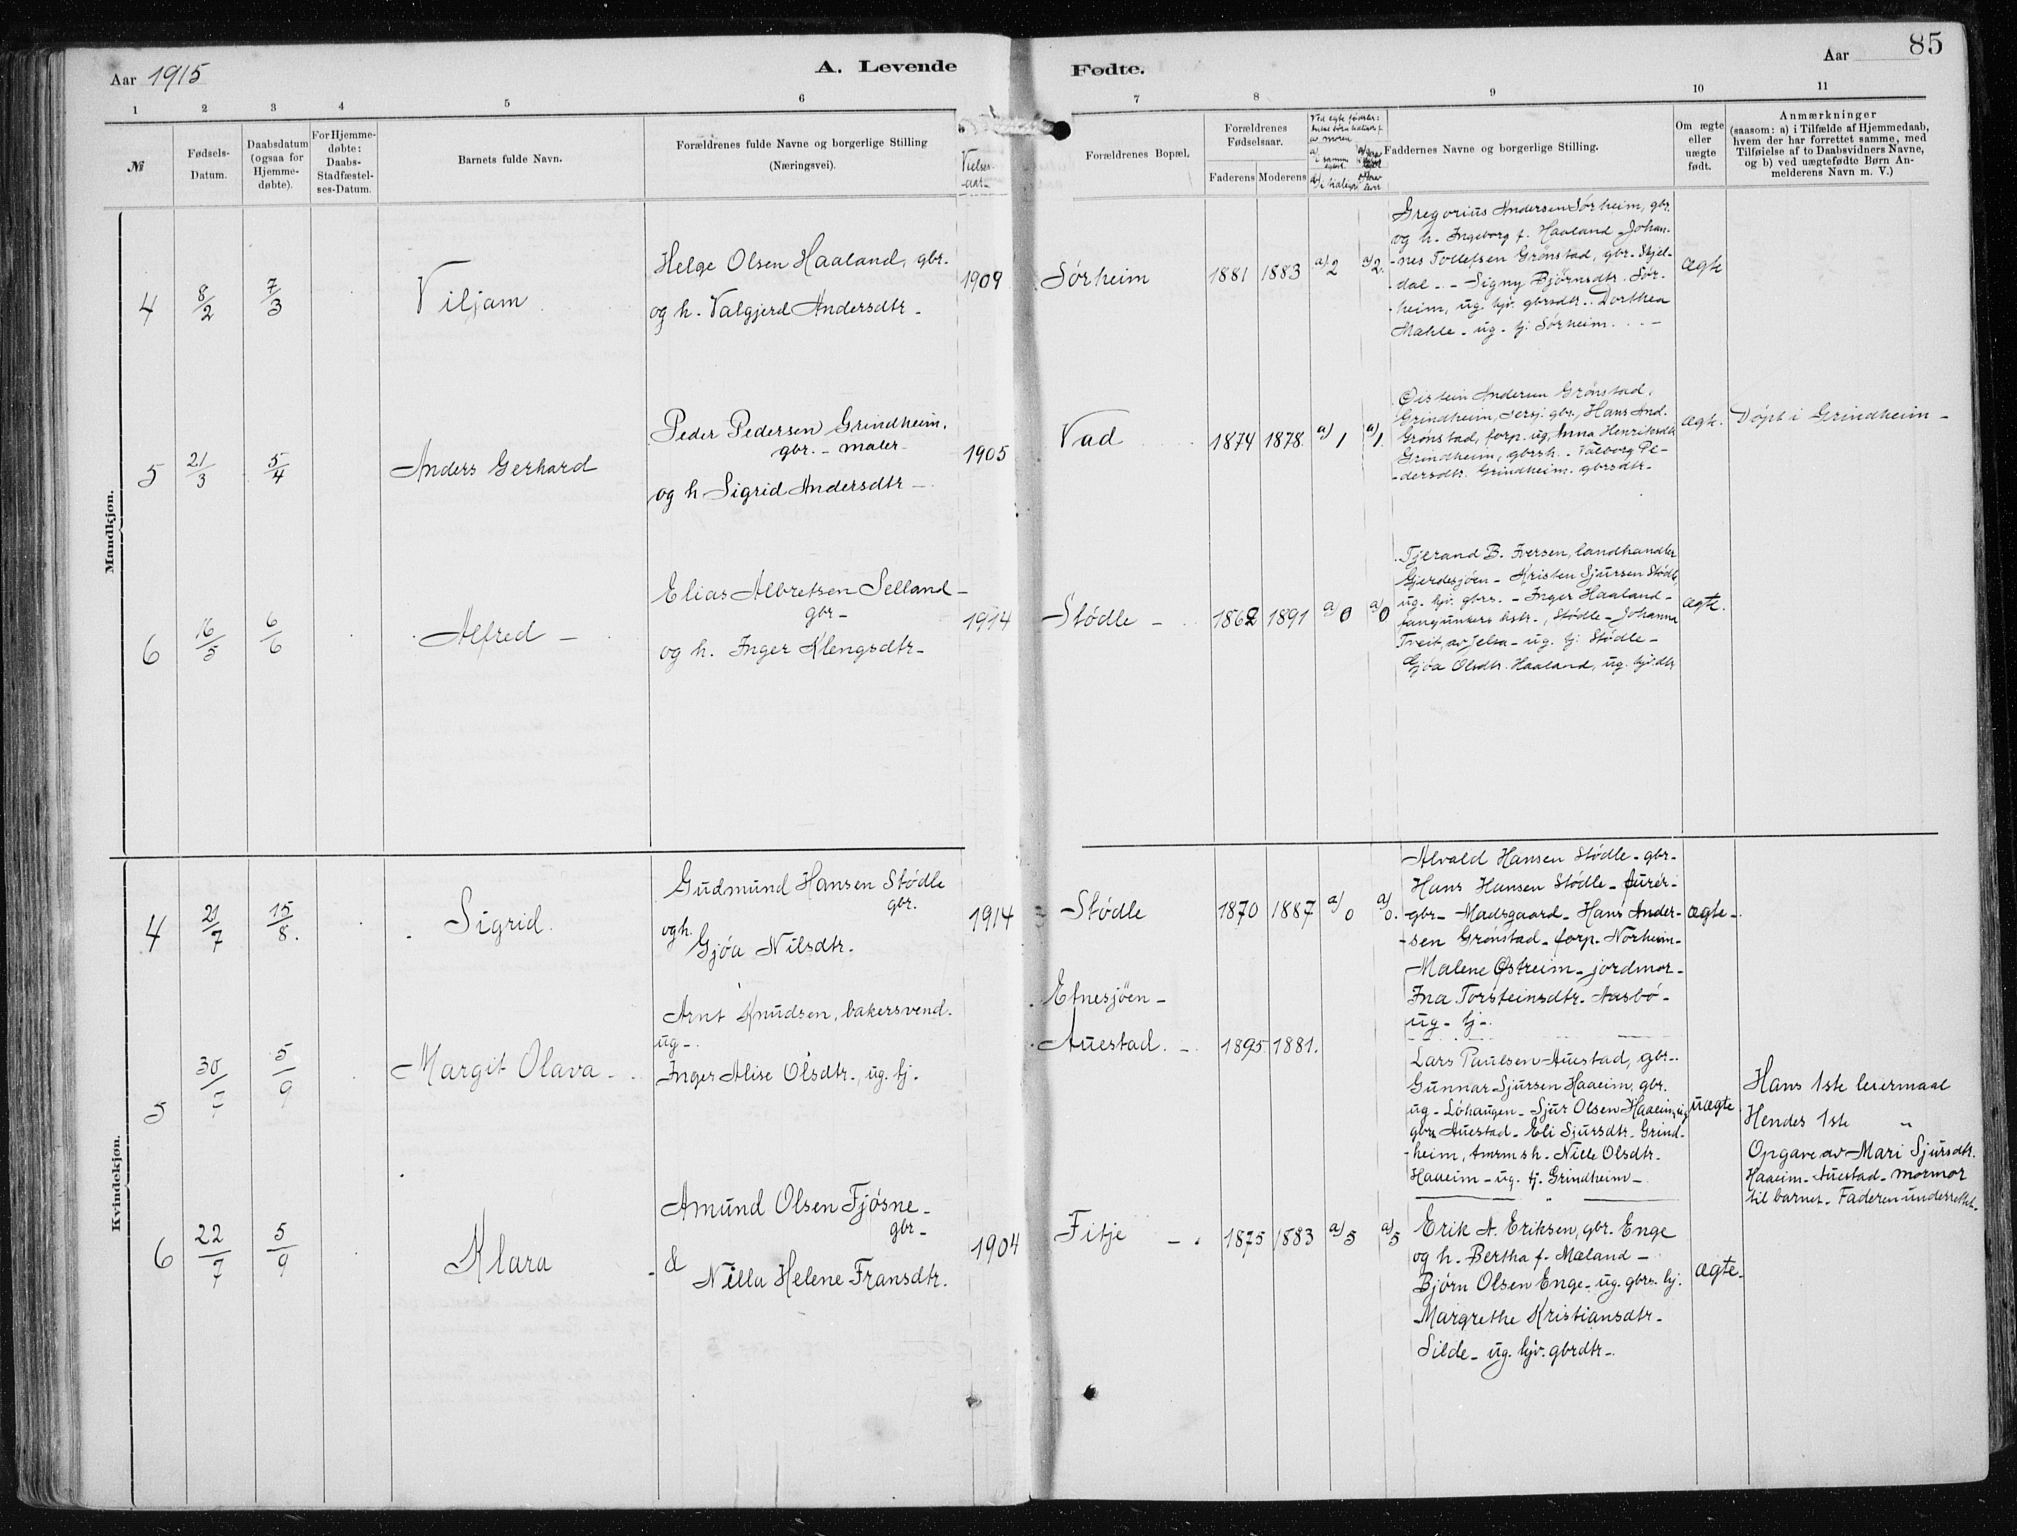 Aar 1915
A. Levende
Fødte.
Aar
85
1 2 3 4 5 6 7 8 9 10 11
№
Fødsels-
Datum.
Daabsdatum
(ogsaa for
Hjemme-
døbte).
For Hjemme-
døbte:
Daabs-
Stadfæstel-
ses-Datum.
Barnets fulde Navn.
Forældrenes fulde Navne og borgerlige Stilling
(Næringsvei).
Vielses-
aar.
Forældrenes Bopæl.
Forældrenes
Fødselsaar.
Faderens Moderens
Faddernes Navne og borgerlige Stilling.
Om ægte
eller
uægte
født.
Anmærkninger
(saasom: a) i Tilfælde af Hjemmedaab,
hvem der har forrettet samme, med
Tilføielse af to Daabsvidners Navne,
og b) ved uægtefødte Børn An-
melderens Navn m. V.)
Mandkjøn.
4
8/2
7/3
Viljam
Helge Olsen Haaland, gbr.
og h. Valgjerd Andersdtr.
1909
Sørheim
1881 1883 a/2 a/2.
Gregorius Andersen Sørheim, gbr.
og h. Ingeborg f. Haaland - Johan-
nes Tollefsen Grønstad, gbr. Skjel-
dal - Signy Bjørnsdtr. Sør-
heim, ug. hjv. gbrsdtr. Dorthea
Mæhle - ug. tj. Sørheim.
Ægte
5
21/3
5/4
Anders Gerhard
Peder Pedersen Grindheim,
gbr. - maler -
og h Sigrid Andersdtr -
1905
Vad
1874 1878 a/1 a/1.
Øistein Andersen Grønstad,
Grindheim, sersj. gbr., Hans And.
Grønstad, forp. ug, Anna Henriksdtr
Grindheim, gbrsh. - Valborg Pe-
dersdtr. Grindheim. gbrsdtr.
Ægte.
Døpt i Grindheim -
6
16/5
6/6
Alfred -
Elias Albretsen Selland -
gbr -
og h. Inger Klengsdtr -
1914
Stødle -
1862 1891 a/0 a/0
Tjerand B. Iversen, landhandler
Gjerdesjøen - Kristen Sjursen Stødle,
ug. hjv. gbrs. - Inger Haaland -
Stødle - Johanna
Treit, av Jelsa - ug. tj. Stødle -
Gjøa Olsdtr. Haaland, ug. hjv. dtr
Ægte.
Kvindekjøn.
4
21/7
15/8.
Sigrid.
Gudmund Hansen Stødle
gbr.
og h.
Gjøa Nilsdtr.
1914
Stødle
1870 1887 a/0 a/0.
Alvald Hansen Stødle - gbr -
Hans Hansen Stødle -
gbr - Madsgaard - Hans Ander-
sen Grønstad - forp. Norheim -
Malene Østreim - jordmor -
Ina Torsteinsdtr. Aasbø -
ug - tj -.
Ægte -
5
30/7
5/9
Margit Olava -
Arnt Knudsen, bakersvend.
ug -.
Inger Alise Olsdtr., ug. tj.
Etnesjøen -
Auestad. -
1895 1881.
Lars Paulsen Auestad, gbr -
Gunnar Sjursen Haaeim, gbr.
ug - Løhaugen - Sjur Olsen Haaeim, ug
gbrs Auestad - Eli Sjursdtr. Grind-
heim, Amrmsh. Nille Olsdtr.
Haaeim - ug. tj. Grindheim -
uægte
Hans 1ste leiermaal
Hendes 1ste "
Opgave av Mari Sjursdtr.
Haaeim - Auestad - mormor
til barnet. Faderen underrettet.
6
22/7
5/9
Klara
Amund Olsen Fjøsne -
gbr -
&
Nilla Helene Fransdtr.
1904
Fitje -
1875 1883 a/5 a/5
Erik A. Eriksen, gbr. Enge
og h. Bertha f. Mæland -
Bjørn Olsen Enge - ug. gbrs. hj.
Margrethe Kristiansdtr -
Silde - ug. hjv. gbrdtr -.
Ægte.